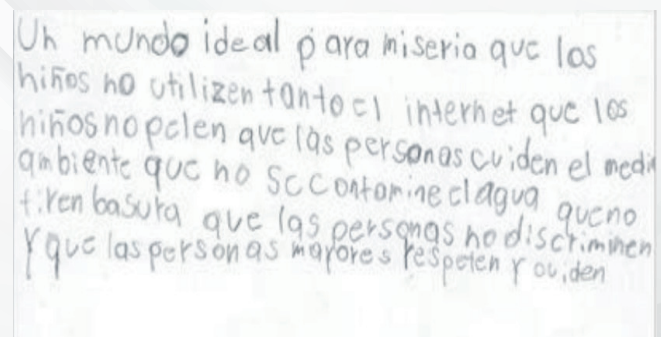 Un mundo ideal para miseria que los
niños no utilizen tanto el internet que los
niños no pelen que las personas cuiden el medi
ambiente que no se contamine el agua que no
tiren basura que las personas no discriminen
y que las personas mayores respeten y cuiden